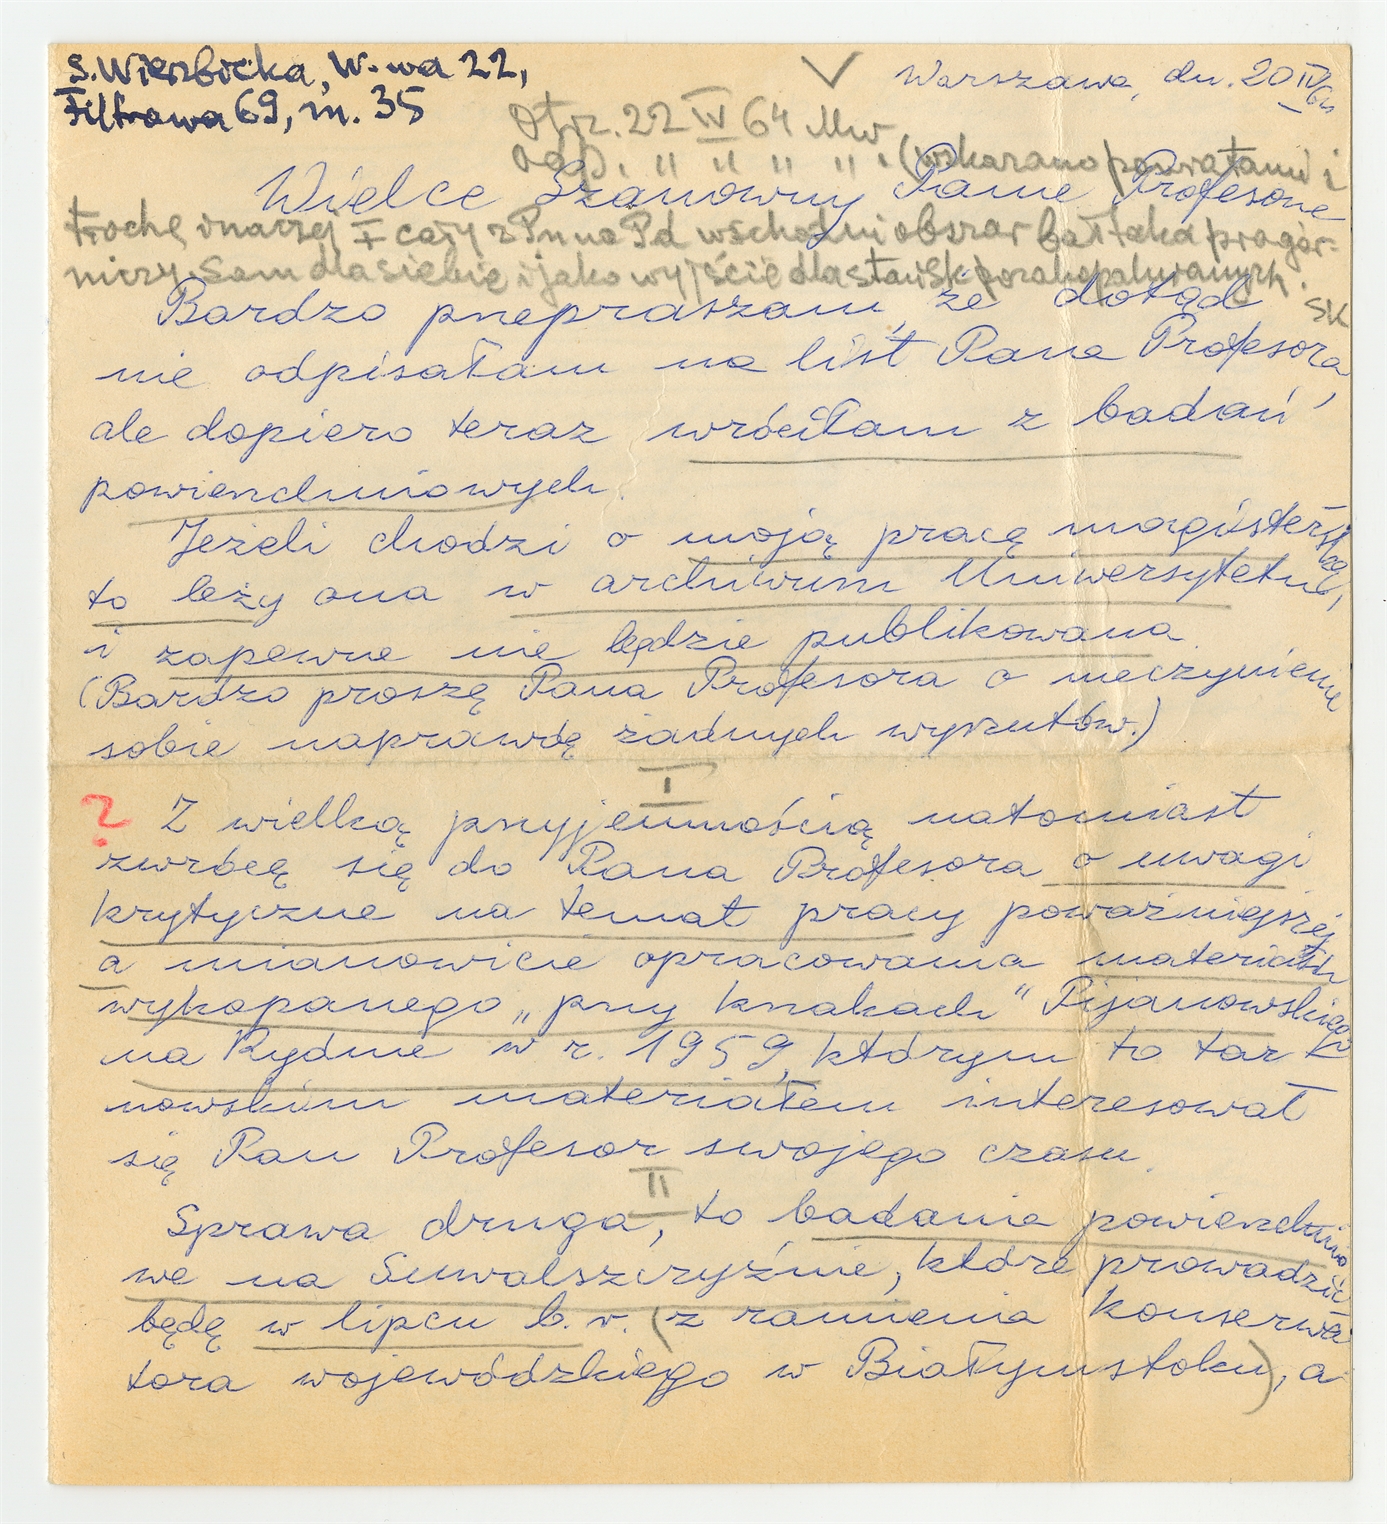 S. Wierzbicka, W-wa 22,
Filtrowa 69, m. 35
Warszawa, dn. 20 IV 64
Otrz. 22 IV 64 Mw
Odp. " " " " . (wskazano powiatami i
trochę inaczej I cały z Pn na Pd wschodni obszar
sam dla siebie i jako wyjście dla
SK
Wielce Szanowny Panie Profesorze
Bardzo przepraszam, że dotąd
nie odpisałam na list Pana Profesora,
ale dopiero teraz wróciłam z badań
powierzchniowych.
Jeżeli chodzi o moją pracę magisterską,
to leży ona w archiwum Uniwersytetu,
i zapewne nie będzie publikowana
(Bardzo proszę Pana Profesora o nieczynienie
sobie naprawdę żadnych wyrzutów.)
I
? Z wielką przyjemnością natomiast
zwrócę się do Pana Profesora o uwagi
krytyczne na temat pracy poważniejszej
a mianowicie opracowania materiału
wykopanego „przy krzakach" Pijanowskiego
na Rydnie w r. 1959, którym to tar
nowskim materiałem interesował
się Pan Profesor swojego czasu.
II
Sprawa druga, to badania powierzchnio
we na Suwalszczyźnie, które prowadzić
będę w lipcu b.r. (z ramienia konserwa
tora wojewódzkiego w Białymstoku), a